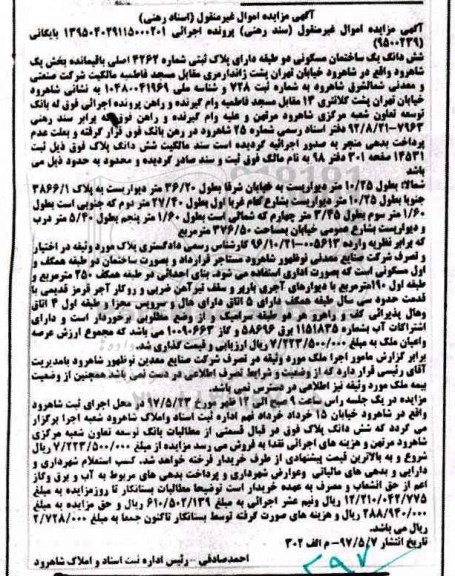 آگهی مزایده اموال غیرمنقول (اسناد رهنی)
آگهی مزایده اموال غیرمنقول (سند رهنی) پرونده اجرائی ۱۳۹۵۰۴۰۲۹۱۱۵۰۰۰۲۰۱ بایگانی
(۹۵۰۰۲۳۹)
شش دانگ یک ساختمان مسکونی دو طبقه دارای پلاک ثبتی شماره ۴۲۶۲ اصلی باقیمانده بخش یک
شاهرود واقع در شاهرود خیابان تهران پشت ژاندارمری مقابل مسجد فاطمیه مالکیت شرکت صنعتی
و معدنی شمالشرق شاهرود به شماره ثبت ۷۲۸ و شناسه ملی ۱۰۴۸۰۰۴۱۹۶۹ به نشانی شاهرود
خیابان تهران پشت کلانتری ۱۳ مقابل مسجد فاطمیه وام گیرنده و راهن پرونده اجرائی فوق له بانک
توسعه تعاون شعبه مرکزی شاهرود مرتهن و علیه وام گیرنده و راهن فوق که برابر سند رهنی
۷۹۶۳-۹۲/۸/۲۱ دفتر اسناد رسمی شماره ۲۵ شاهرود در رهن بانک فوق قرار گرفته و بعلت عدم
پرداخت بدهی منجر به صدور اجرائیه گردیده است سند مالکیت شش دانگ پلاک فوق ذیل ثبت
۱۴۵۳۱ صفحه ۳۰۱ دفتر ۹۸ به نام مالک فوق ثبت و سند صادر گردیده و محدود به حدود ذیل می
باشد
شمالا: بطول ۱۰/۲۵ متر دیواریست به خیابان شرقا بطول ۳۶/۲۰ متر دیواریست به پلاک ۳۸۶۶/۱
جنوبا بطول ۱۰/۲۵ متر دیواریست بشارع گام غربا اول بطول ۲۷/۴۰ متر دوم که جنوبی است بطول
۱/۶۰ متر سوم بطول ۳/۴۵ متر چهارم که شمالی است بطول ۱/۶۰ متر پنجم بطول ۵/۴۰ متر درب
و دیواریست بشارع عمومی خیابان بمساحت ۳۷۶/۵۰ مترمربع
که برابر نظریه وارده ۰۰۵۶۱۳-۹۶/۱۰/۲۱ کارشناس رسمی دادگستری پلاک مورد وثیقه در اختیار
و تصرف شرکت صنایع معدنی نوظهور شاهرود مستاجر قرارداد و بصورت ساختمان در طبقه همکف و
اول مسکونی است که بصورت اداری استفاده می شود. بنای احداثی در طبقه همکف ۲۵۰ مترمربع و
طبقه اول ۱۹۰مترمربع با دیوارهای آجری باربر و سقف تیرآهن ضربی و روکار آجر قرمز قدیمی با
قدمت حدود سی سال طبقه همکف دارای ۵ اتاق دارای هال و سرویس مجزا، طبقه اول ۴ اتاق
وهال پذیرائی کف و راهرو هر دو طبقه سرامیک و از وضع مطلوبی برخوردار است و دارای
اشتراکات آب بشماره ۱۱۵۱۸۳۵ برق ۵۸۶۹۶ و گاز ۱۰۰۹۰۶۶۳ می باشد که مجموع ارزش عرصه
واعیان ملک به مبلغ ۷/۲۲۳/۵۰۰/۰۰۰ ریال ارزیابی و قیمت گذاری شد.
برابر گزارش مامور اجرا ملک مورد وثیقه در تصرف شرکت صنایع معدین نوظهور شاهرود بامدیریت
آقای رئیسی قرار دارد که از وضعیت و شرایط تصرف اطلاعی در دست نمی باشد همچنین از وضعیت
بیمه ملک مورد وثیقه نیز اطلاعی در دسترس نمی باشد.
مزایده در یک جلسه راس ساعت ۹ صبح الی ۱۲ ظهر مورخ ۹۷/۵/۲۳ در محل اجرای ثبت شاهرود
واقع در شاهرود خیابان ۱۵ خرداد خرداد نهم اداره ثبت اسناد واملاک شاهرود شعبه اجرا برگزار
می گردد که شش دانگ پلاک فوق در قبال قسمتی از مطالبات بانک توسعه تعاون شعبه مرکزی
شاهرود مرتهن و هزینه های اجرائی نقدا به فروش می رسد مزایده از مبلغ ۷/۲۲۳/۵۰۰/۰۰۰ ریال
شروع و به بالاترین قیمت پیشنهادی از طرف خریدار فرخته خواهد شد. کسب استعلام شهرداری و
دارایی و بدهی های مالیاتی وعوارض شهرداری و پرداخت بدهی های مربوط به آب و برق وگاز
اعم از حق انشعاب و مصرف به عهده خریدار است توضیحا مطالبات بستانکار تا روزمزایده به مبلغ
۱۲/۲۱۰/۰۴۲/۷۷۵ ریال ونیم عشر اجرائی به مبلغ ۶۱۰/۵۰۲/۱۳۹ ریال و حق مزایده به مبلغ
۲۸۸/۹۴۰/۰۰۰ ریال و هزینه های صورت گرفته توسط بستانکار تاکنون جمعا به مبلغ ۲/۷۲۸/۰۰۰
ریال می باشد.
تاریخ انتشار ۹۷/۵/۷-م الف ۳۰۲
احمدصادقی -رئیس اداره ثبت اسناد و املاک شاهرود